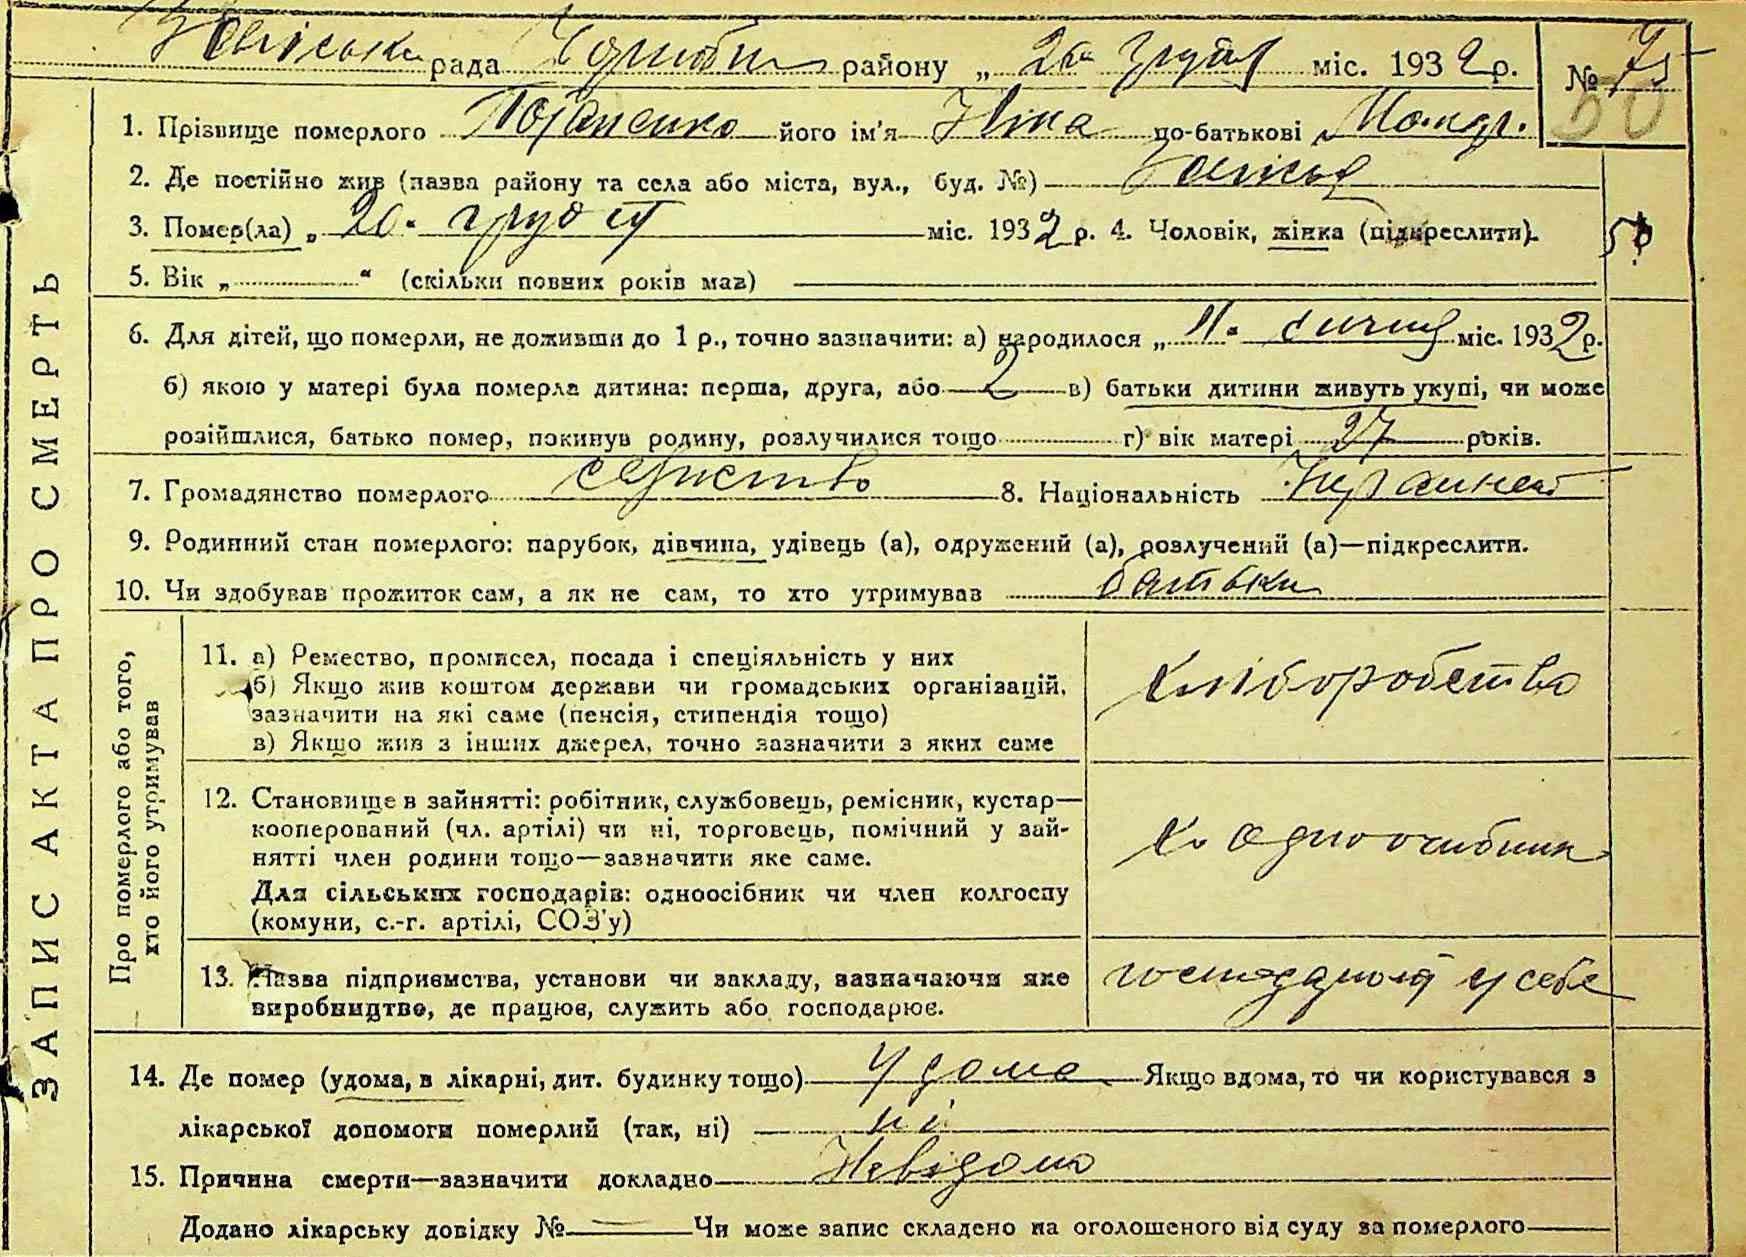 рада району „ 20 грудня міс. 1932 р. № 75
50
1. Прізвище померлого його ім'я Ніна по-батькові
2. Де постійно жив (назва району та села або міста, вул., буд. №)
3. Помер(ла) „ 20 " грудня міс. 1932 р. 4. Чоловік, жінка (підкреслити).
5. Вік „ “ (скільки повних років мав)
6. Для дітей, що померли, не доживши до 1 р., точно зазначити: а) народилося „ 11 " січня міс. 1932 р.
б) якою у матері була померла дитина: перша, друга, або 2 в) батьки дитини живуть укупі, чи може
розійшлися, батько помер, покинув родину, розлучилися тощо г) вік матері 27 років.
7. Громадянство померлого 8. Національність
9. Родинний стан померлого: парубок, дівчина, удівець (а), одружений (а), розлучений (а)—підкреслити.
10. Чи здобував прожиток сам, а як не сам, то хто утримував батьки
ЗАПИС АКТА ПРО СМЕРТЬ
Про померлого або того,
хто його утримував
11. а) Ремество, промисел, посада і спеціяльність у них
б) Якщо жив коштом держави чи громадських організацій,
зазначити на які саме (пенсія, стипендія тощо)
в) Якщо жив з інших джерел, точно зазначити з яких саме
хліборобство
12. Становище в зайнятті: робітник, службовець, ремісник, кустар—
кооперований (чл. артілі) чи ні, торговець, помічний у зай-
нятті член родини тощо—зазначити яке саме.
Для сільських господарів: одноосібник чи член колгоспу
(комуни, с.-г. артілі, СОЗ'у)
одноосібник
13. Назва підприємства, установи чи закладу, зазначаючи яке
виробництво, де працює, служить або господарює.
у себе
14. Де помер (удома, в лікарні, дит. будинку тощо) удома Якщо вдома, то чи користувався з
лікарської допомоги померлий (так, ні) ні
15. Причина смерти—зазначити докладно Невідома
Додано лікарську довідку № — Чи може запис складено на оголошеного від суду за померлого